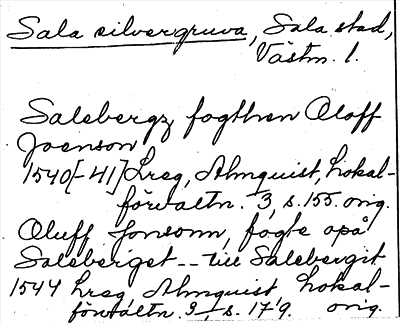 Sala silvergruva, Sala stad,
Västm. l.
Salebergz fogthen Oloff
Joenson
1540[-41] Lreg, Almquist, Lokal-
förvaltn. 3, s. 155. orig.
Oluff Jonsonn, fogte opå
Saleberget -- till Salebergit
1544 Lreg Almquist Lokal-
förvaltn. s. 179. orig.